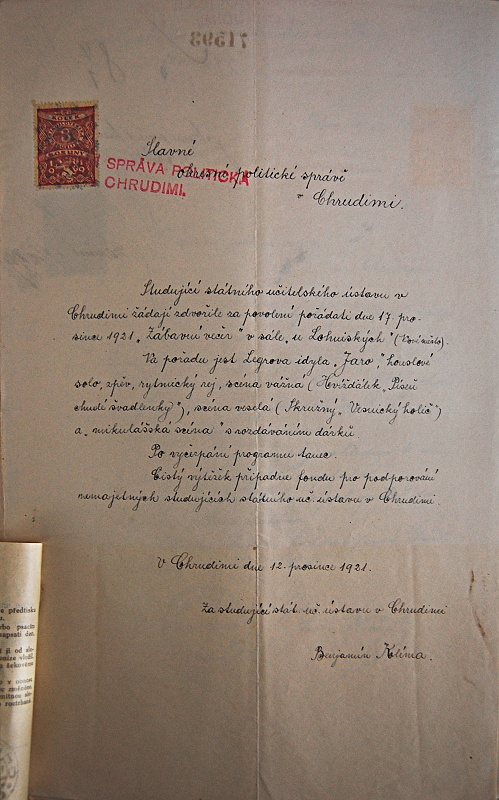 71593
Slavné
SPRÁVA POLITICKÁ
CHRUDIMI.
okresní politické správě
v Chrudimi.
Studující státního učitelského ústavu v
Chrudimi žádají zdvořile za povolení pořádati dne 17. pro-
since 1921 „Zábavní večír" v sále „u Lohniských" (Nové město).
Na pořadu jest Legrova idyla „Jaro," houslové
solo, zpěv, rytmický rej, scéna vážná (Hvížďálek „Píseň
chudé švadlenky"), scéna veselá (Skružný „Vesnický holič")
a „mikulášská scéna" s rozdáváním dárků.
Po vyčerpání programu tanec.
Čistý výtěžek připadne fondu pro podporování
nemajetných studujících státního uč. ústavu v Chrudimi.
V Chrudimi dne 12. prosince 1921.
Za studující stát. uč. ústavu v Chrudimi
Benjamin Klíma.